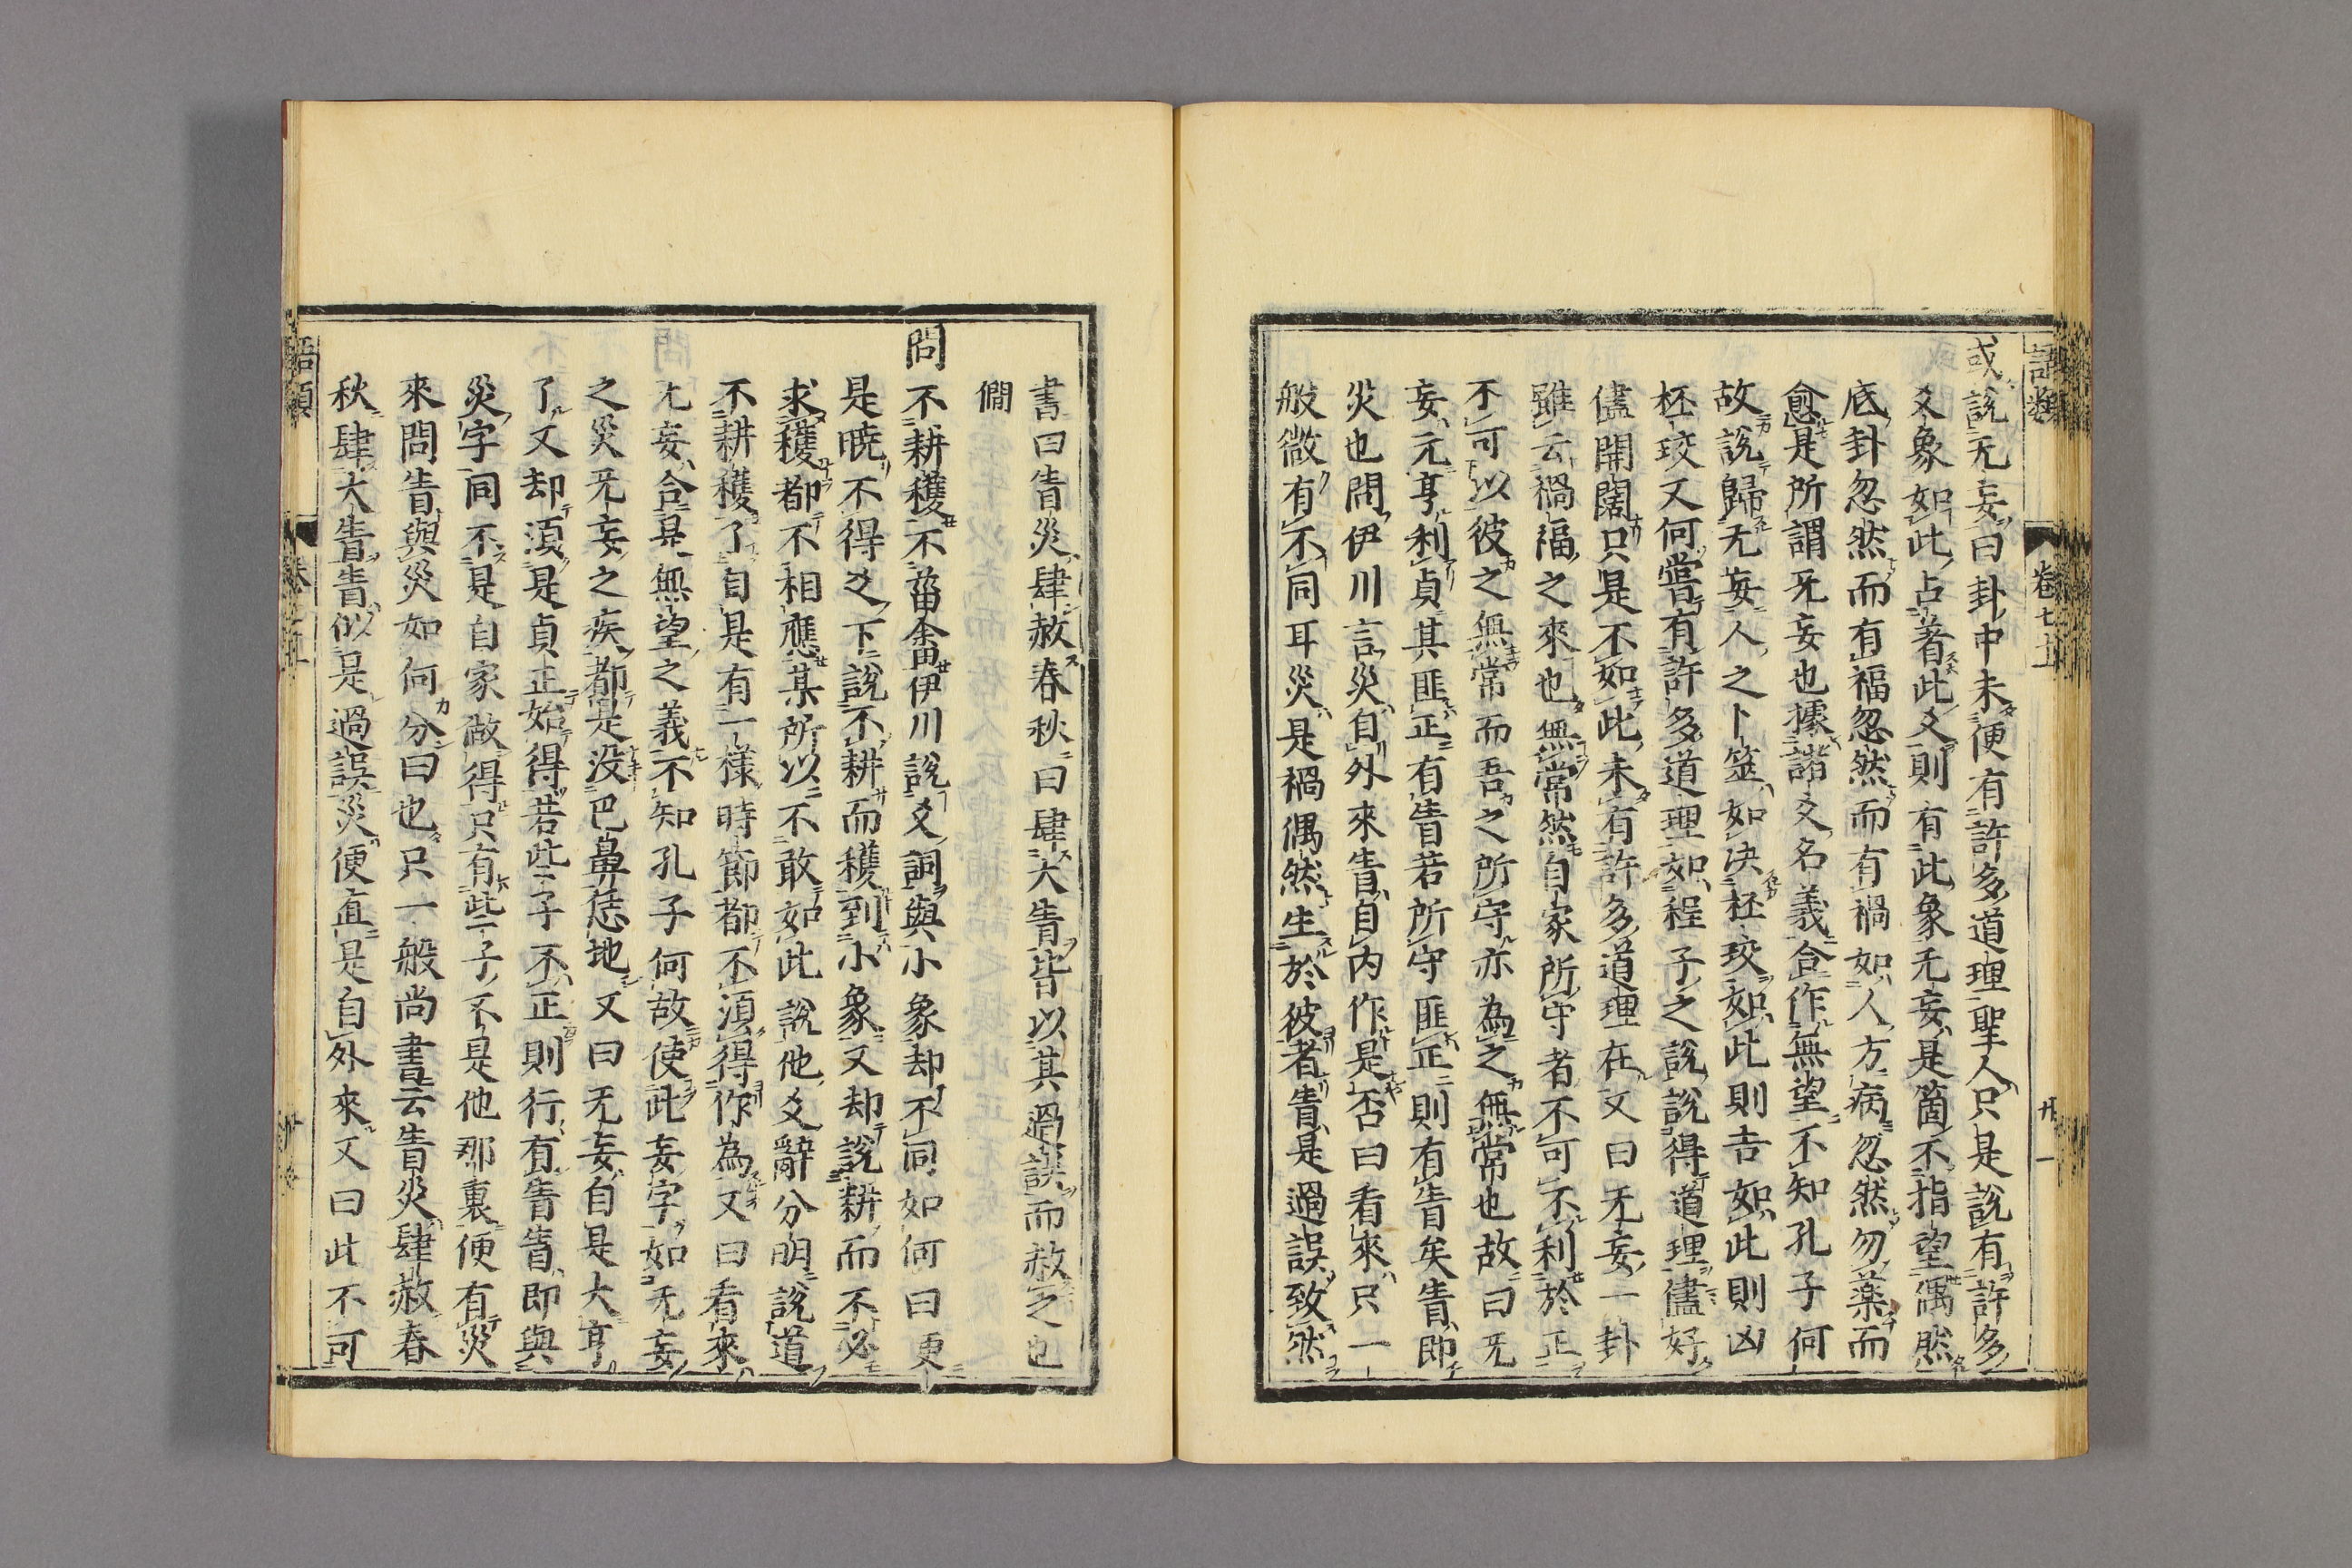 語類 卷七十一
或說无妄曰卦中未便有許多道理聖人只是說有許多
爻象如此占著此爻則有此象无妄是箇不指望偶然
底卦忽然而有福忽然而有禍如人方病忽然勿藥而
愈是所謂无妄也據諸爻名義合作無望不知孔子何
故說歸无妄人之卜筮如決杯珓如此則吉如此則凶
杯珓又何嘗有許多道理如程子之說說得道理儘好
儘開闊只是不如此未有許多道理在又曰无妄一卦
雖云禍福之來也無常然自家所守者不可不利於正
不可以彼之無常而吾之所守亦為之無常也故曰无
妄元亨利貞其匪正有眚若所守匪正則有眚矣眚即
災也問伊川言災自外來眚自內作是否曰看來只一
般微有不同耳災是禍偶然生於彼者眚是過誤致然
書曰眚災肆赦春秋曰肆大眚皆以其過誤而赦之也
僩
問不耕穫不菑畬伊川說爻詞與小象却不同如何曰更
是曉不得爻下說不耕而穫到小象又却說耕而不必
求穫都不相應某所以不敢如此說他爻辭分明說道
不耕穫了自是有一樣時節都不須得作為又曰看來
无妄合是無望之義不知孔子何故使此妄字如无妄
之災无妄之疾都是没巴鼻恁地又曰无妄自是大亨
了又却須是貞正始得若些子不正則行有眚眚即與
災字同不是自家做得只有些子不是他那裏便有災
來問眚與災如何分曰也只一般尚書云眚災肆赦春
秋肆大眚眚似是過誤災便直是自外來又曰此不可